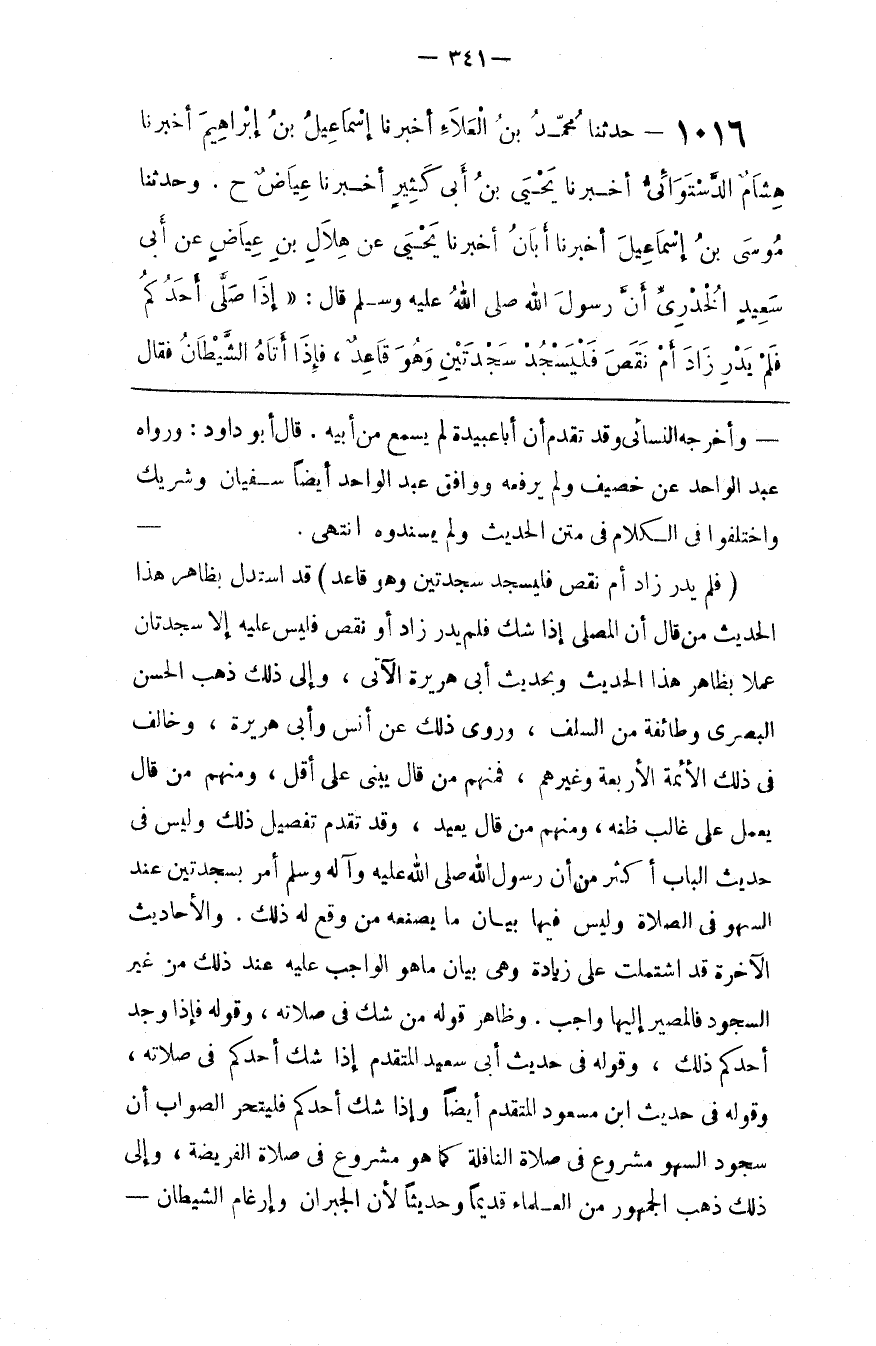 — ٣٤١ —
١٠١٦ — حدثنا مُحمَّدُ بنُ الْعَلاَءِ أخبرنا إِسْمَاعِيلُ بنُ إِبْرَاهِيمَ أخبرنا
هِشَامٌ الدَّسْتَوَائىُّ أخبرنا يَحْيَى بنُ أَبى كَثِيرٍ أخبرنا عِيَاضٌ ح . وحدثنا
مُوسَى بنُ إِسْمَاعِيلَ أخبرنا أَبَانُ أخبرنا يَحْيَى عن هِلاَلِ بنِ عِيَاضٍ عن أَبى
سَعِيدٍ الْخُدْرِىِّ أَنَّ رسولَ الله صلى اللهُ عليه وسلم قال : « إِذَا صَلَّى أَحَدُكُمْ
فَلَمْ يَدْرِ زَادَ أَمْ نَقَصَ فَلْيَسْجُدْ سَجْدَتَيْنِ وَهُوَ قَاعِدٌ ، فإِذَا أَتَاهُ الشَّيْطَانُ فقال
— وأخرجه النسائى وقد تقدم أن أبا عبيدة لم يسمع من أبيه . قال أبو داود : ورواه
عبد الواحد عن خصيف ولم يرفعه ووافق عبد الواحد أيضاً سفيان وشريك
واختلفوا فى الكلام فى متن الحديث ولم يسندوه انتهى . —
( فلم يدر زاد أم نقص فليسجد سجدتين وهو قاعد ) قد استدل بظاهر هذا
الحديث من قال أن المصلى إذا شك فلم يدر زاد أو نقص فليس عليه إلا سجدتان
عملا بظاهر هذا الحديث وبحديث أبى هريرة الآتى ، وإلى ذلك ذهب الحسن
البصرى وطائفة من السلف ، وروى ذلك عن أنس وأبى هريرة ، وخالف
فى ذلك الأئمة الأربعة وغيرهم ، فمنهم من قال يبنى على أقل ، ومنهم من قال
يعمل على غالب ظنه ، ومنهم من قال يعيد ، وقد تقدم تفصيل ذلك وليس فى
حديث الباب أكثر من أن رسول الله صلى الله عليه وآله وسلم أمر بسجدتين عند
السهو فى الصلاة وليس فيها بيان ما يصنعه من وقع له ذلك . والأحاديث
الآخرة قد اشتملت على زيادة وهى بيان ماهو الواجب عليه عند ذلك من غير
السجود فالمصير إليها واجب . وظاهر قوله من شك فى صلاته ، وقوله فإذا وجد
أحدكم ذلك ، وقوله فى حديث أبى سعيد المتقدم إذا شك أحدكم فى صلاته ،
وقوله فى حديث ابن مسعود المتقدم أيضاً وإذا شك أحدكم فليتحر الصواب أن
سجود السهو مشروع فى صلاة النافلة كما هو مشروع فى صلاة الفريضة ، وإلى
ذلك ذهب الجمهور من العلماء قديماً وحديثاً لأن الجبران وإرغام الشيطان —